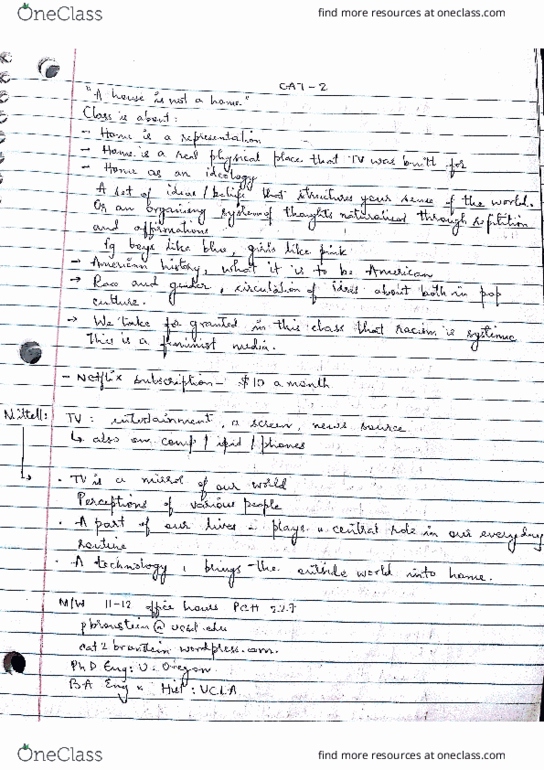 OneClass
find more resources at oneclass.com
CAT-2
"A house is not a home."
Class is about:
- Home is a representation
- Home is a real physical place that TV was built for
- Home as an ideology
A set of ideas / beliefs that structures your sense of the world.
Or an organising system of thoughts naturalised through repitition
and affirmations
Eg boys like blue, girls like pink
→ American history, what it is to be American
→ Race and gender, circulation of ideas about both in pop
culture.
→ We take for granted in this class that racism is systemic
This is a feminist media.
- Netflix subscription - $10 a month
Mittell:
TV: entertainment, a screen, news source
↳ also on comp / ipad / phones
· TV is a mirror of our world
Perceptions of various people
· A part of our lives - plays a central role in our everyday
routine
· A technology, brings the entire world into home.
M/W 11-12 office hours
pbraunstein@ucsd.edu
wordpress.com.
PhD Eng: U. Oregon
BA Eng Hist: UCLA
OneClass
find more resources at oneclass.com